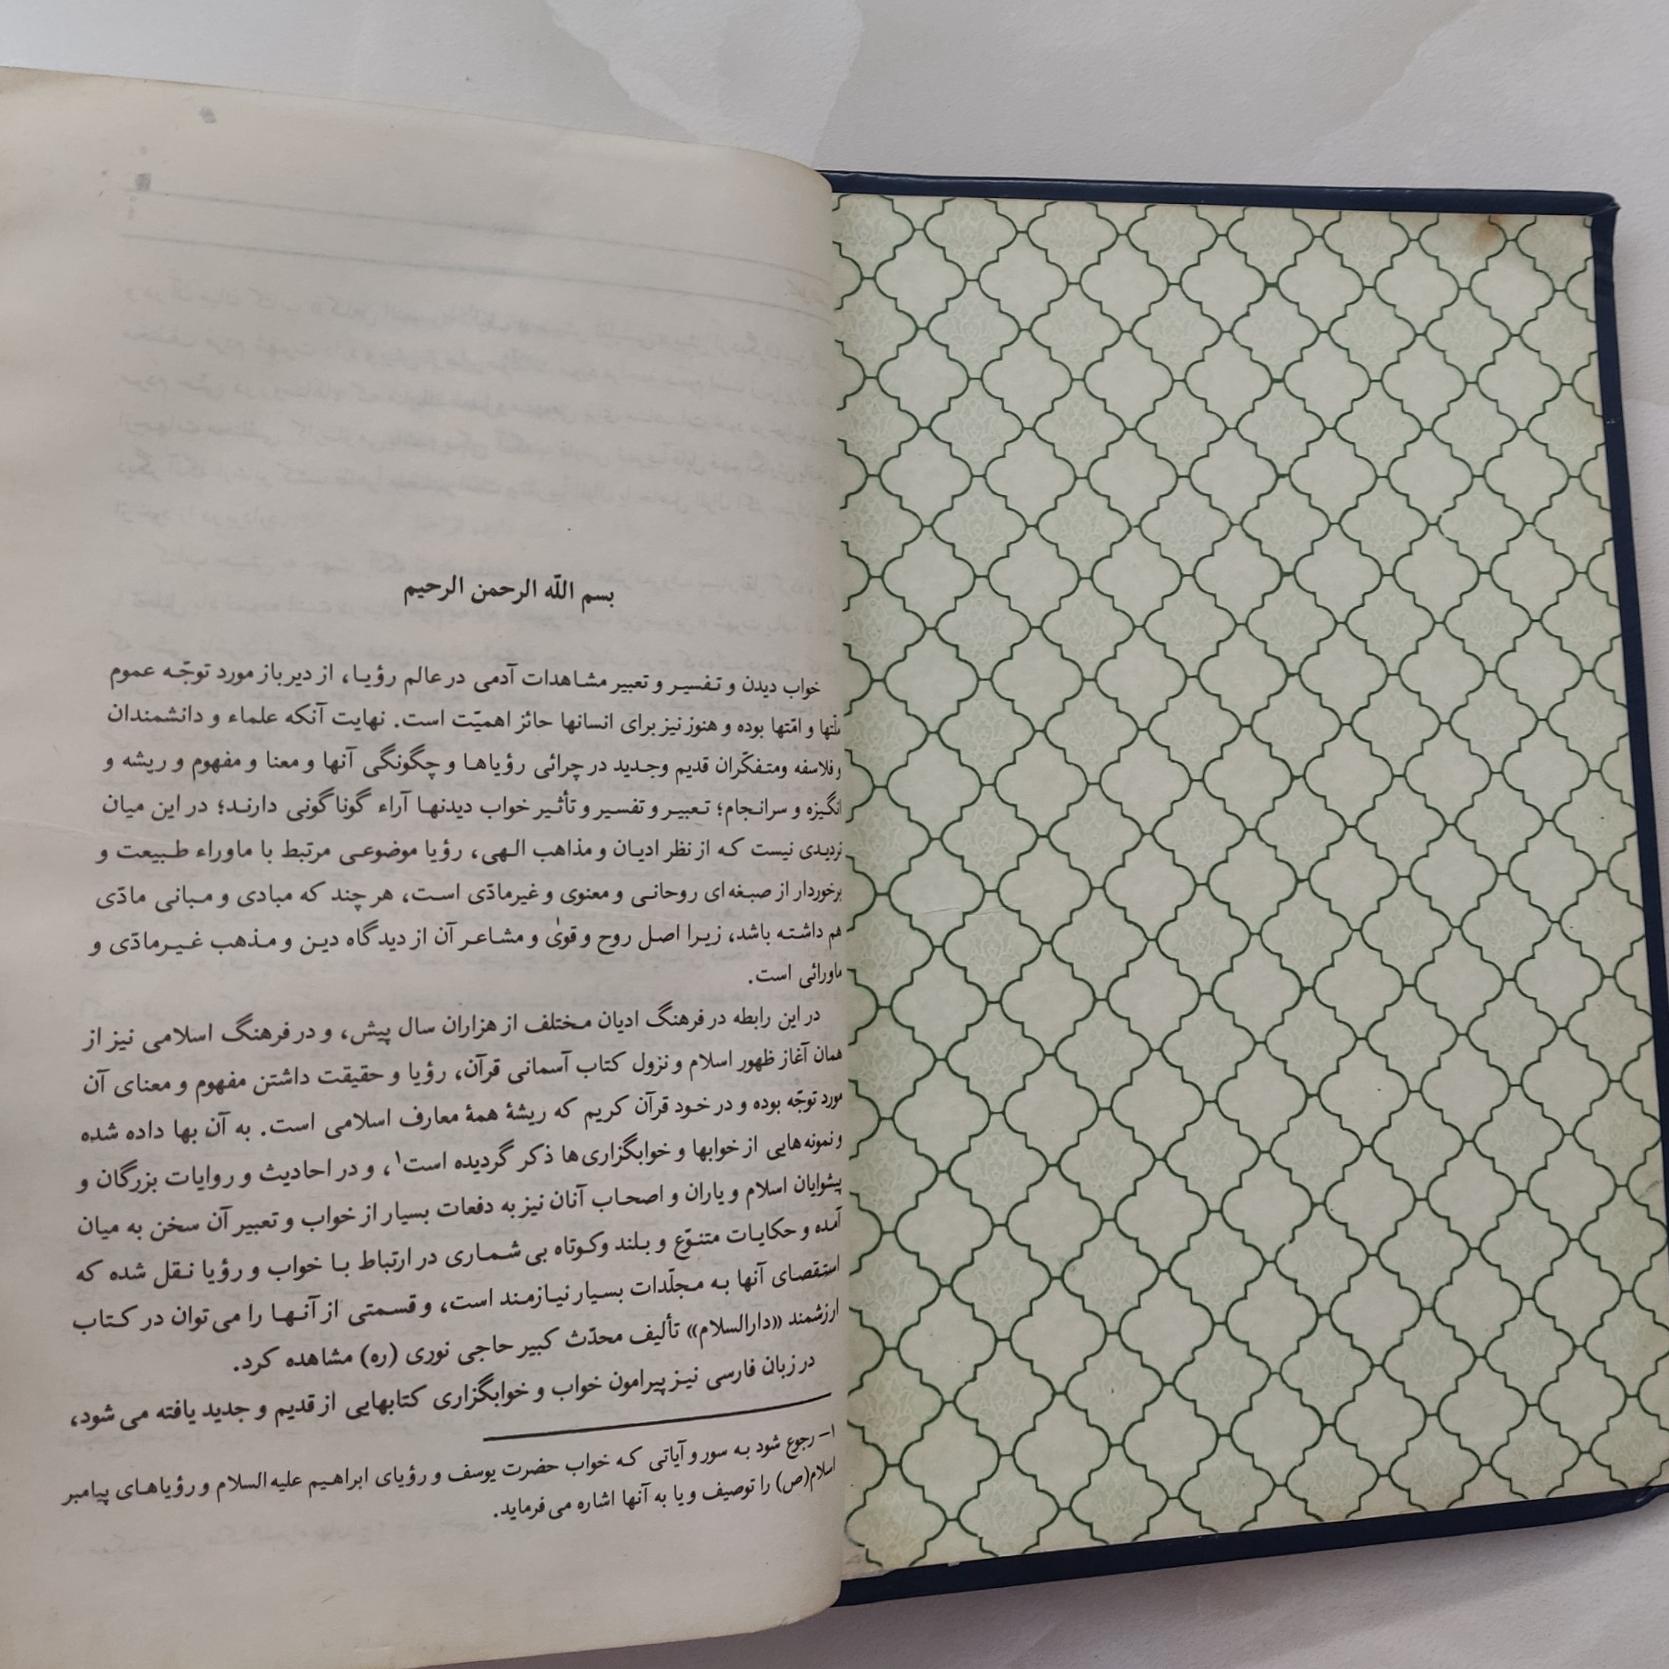 بسم اللّه الرحمن الرحیم
خواب دیدن و تفسیر و تعبیر مشاهدات آدمی در عالم رؤیا، از دیر باز مورد توجّه عموم
ملّتها و امّتها بوده و هنوز نیز برای انسانها حائز اهمیّت است. نهایت آنکه علماء و دانشمندان
و فلاسفه ومتفکّران قدیم وجدید در چرائی رؤیاها و چگونگی آنها و معنا و مفهوم و ریشه و
انگیزه و سرانجام؛ تعبیر و تفسیر و تأثیر خواب دیدنها آراء گوناگونی دارند؛ در این میان
تردیدی نیست که از نظر ادیان و مذاهب الهی، رؤیا موضوعی مرتبط با ماوراء طبیعت و
برخوردار از صبغه‌ای روحانی و معنوی و غیرمادّی است، هر چند که مبادی و مبانی مادّی
هم داشته باشد، زیرا اصل روح و قویٰ و مشاعر آن از دیدگاه دین و مذهب غیرمادّی و
ماورائی است.
در این رابطه در فرهنگ ادیان مختلف از هزاران سال پیش، و در فرهنگ اسلامی نیز از
همان آغاز ظهور اسلام و نزول کتاب آسمانی قرآن، رؤیا و حقیقت داشتن مفهوم و معنای آن
مورد توجّه بوده و در خود قرآن کریم که ریشۀ همۀ معارف اسلامی است. به آن بها داده شده
و نمونه‌هایی از خوابها و خوابگزاری‌ها ذکر گردیده است۱، و در احادیث و روایات بزرگان و
پیشوایان اسلام و یاران و اصحاب آنان نیز به دفعات بسیار از خواب و تعبیر آن سخن به میان
آمده و حکایات متنوّع و بلند وکوتاه بی‌شماری در ارتباط با خواب و رؤیا نقل شده که
استقصای آنها به مجلّدات بسیار نیازمند است، و قسمتی از آنها را می‌توان در کتاب
ارزشمند «دارالسلام» تألیف محدّث کبیر حاجی نوری (ره) مشاهده کرد.
در زبان فارسی نیز پیرامون خواب و خوابگزاری کتابهایی از قدیم و جدید یافته می‌شود،
۱– رجوع شود به سور و آیاتی که خواب حضرت یوسف و رؤیای ابراهیم علیه‌السلام و رؤیاهای پیامبر
اسلام(ص) را توصیف و یا به آنها اشاره می‌فرماید.